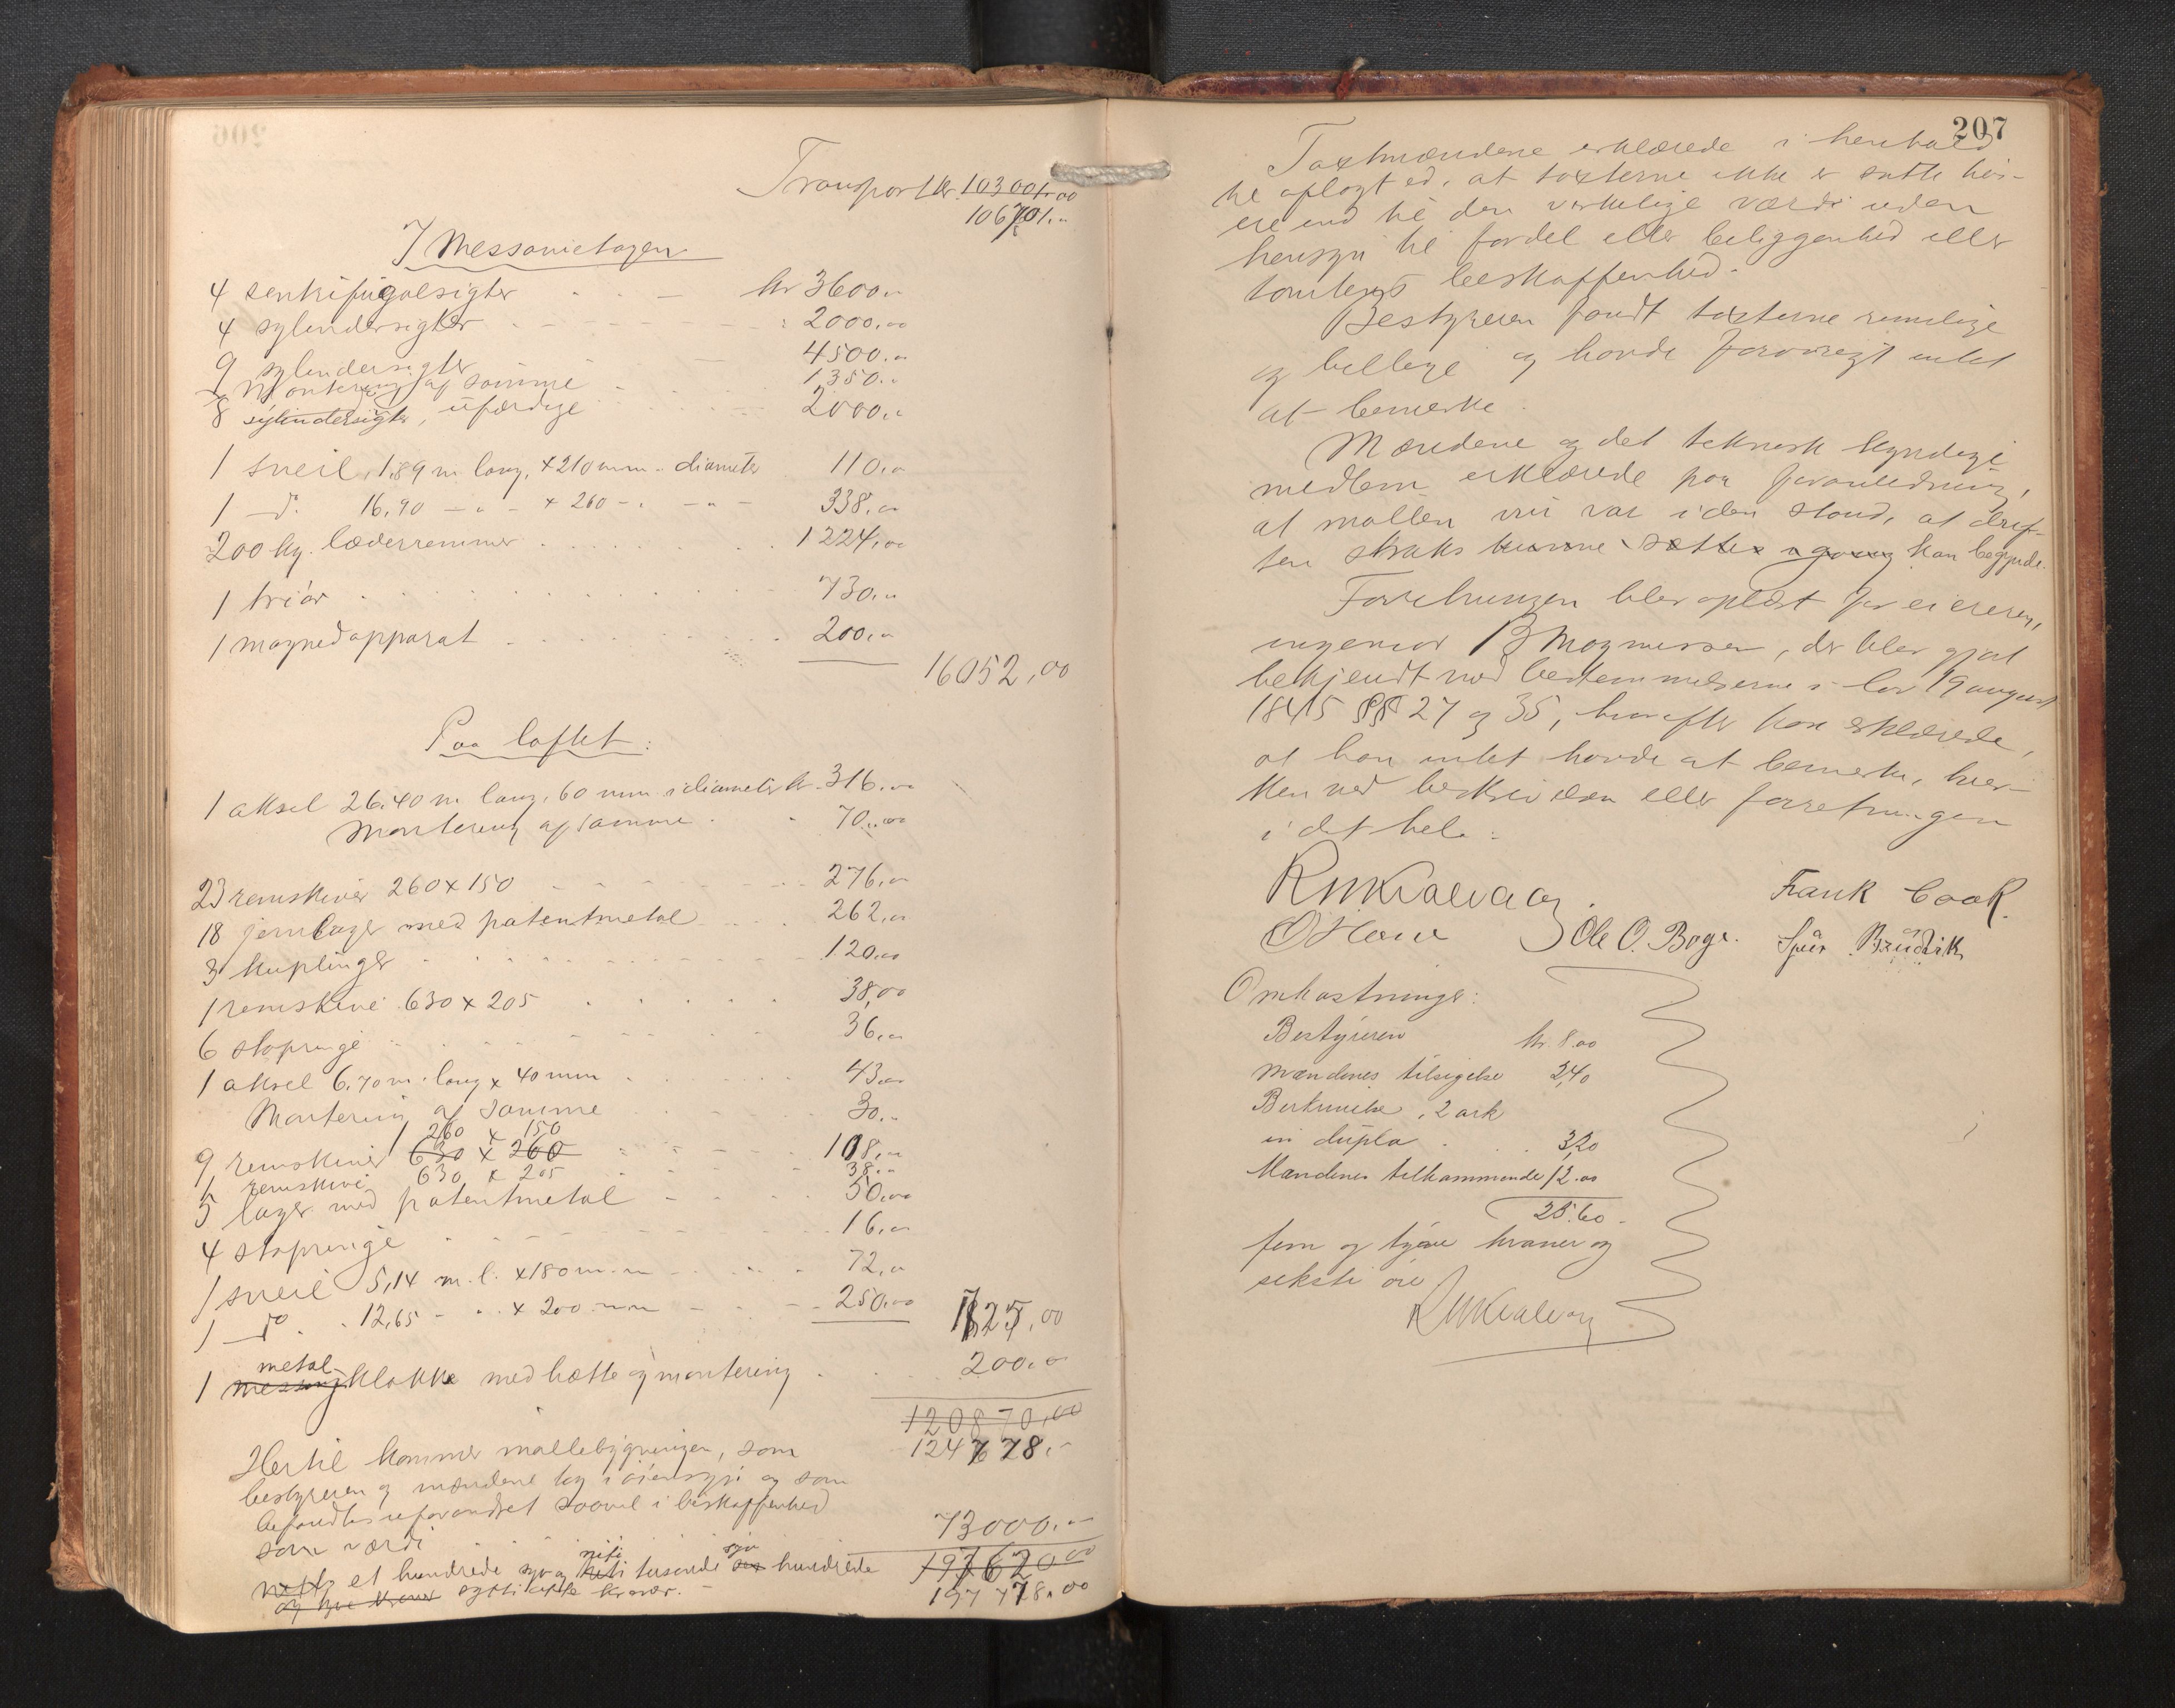 Transport kr. 103001.00
106701.-
I Messanietagen
4 sentrifugalsigter . . - kr 3600.-
4 sylindersigter - - - - - : 2000.00
9 sylindersigter 4500.-
Montering af samme 1350.-
8 sylindersigter, ufærdige 2000.-
1 sneil, 1,89 m lang, x 210 mm. diameter 110.-
1 -do. 16,90 - " - x 260 - . - " - 338.-
200 kg. læderremmer . . . . . . . 1224,00
1 triør . . . . . . 730.-
1 magnedapparat . . . . . . 200.-
16052,00
Paa loftet:
1 aksel 26,40 m lang, 60 mm i diameter kr. 316.-
Montering af samme . . 70.00
23 remskiver 260 x 150 276.-
18 jernlager med patentmetal 262.-
3 kuplinger 120.00
1 remskive 630 x 205 38,00
6 stopringe 36.-
1 aksel 6,70 m. lang x 40 mm 43.-
Montering af samme 30.-
260 x 150
9 remskiver 630 x 260 108.-
1 remskive 630 x 205 38.-
5 lager med patentmetal 50.00
4 stopringe 16.-
1 sneil 5,14 m. l. x 180 m.m 72.-
1 -do . 12,65 - " . x 200 mm 250.00 1725,00
metal
1 messing klokke med hætte og montering . 200.-
120870,00
Hertil kommer møllebygningen, som 124778.-
bestyreren og mændene tog i øiensyn og som
befandtes uforandret saavel i beskaffenhed
som værdi 73000.-
niti syv
et hundrede syv og tusende sex hundrede 197620.00
og tyve kroner sytti otte kroner. - 197778.00
207
Taxtmændene erklærede i henhold
til aflagt ed, at taxterne ikke er satte høi-
ere end til den virkelige værdi uden
hensyn til fordel eller beliggenhed eller
tomtens beskaffenhed.
Bestyreren fandt taxterne rimelige
og billige og havde forøvrigt intet
at bemerke.
Mændene og det teknisk kyndige
medlem erklærede paa foranledning,
at møllen nu var i den stand, at drif-
ten straks kunne sættes igang kan begynde.
Forretningen blev oplæst for eieren,
ingeniør B Magnussen, der blev gjort
bekjendt med bestemmelserne i lov 19 august
1845 §§ 27 og 35, hvorefter han erklærede,
at han intet havde at bemerke, hver-
ken ved beskrivelsen eller forretningen
i det hele:
RMKvalvaag. Frank Cook.
Ole O. Boge.
Omkostninger:
Bestyreren kr. 8.00
Mændenes tilsigelse 2,40
Beskrivelse, 2 ark
in dupla . . . 3,20
Mændenes tilkommende 12.00
25.60
fem og tyve kroner og
seksti øre
RMKvalvaag